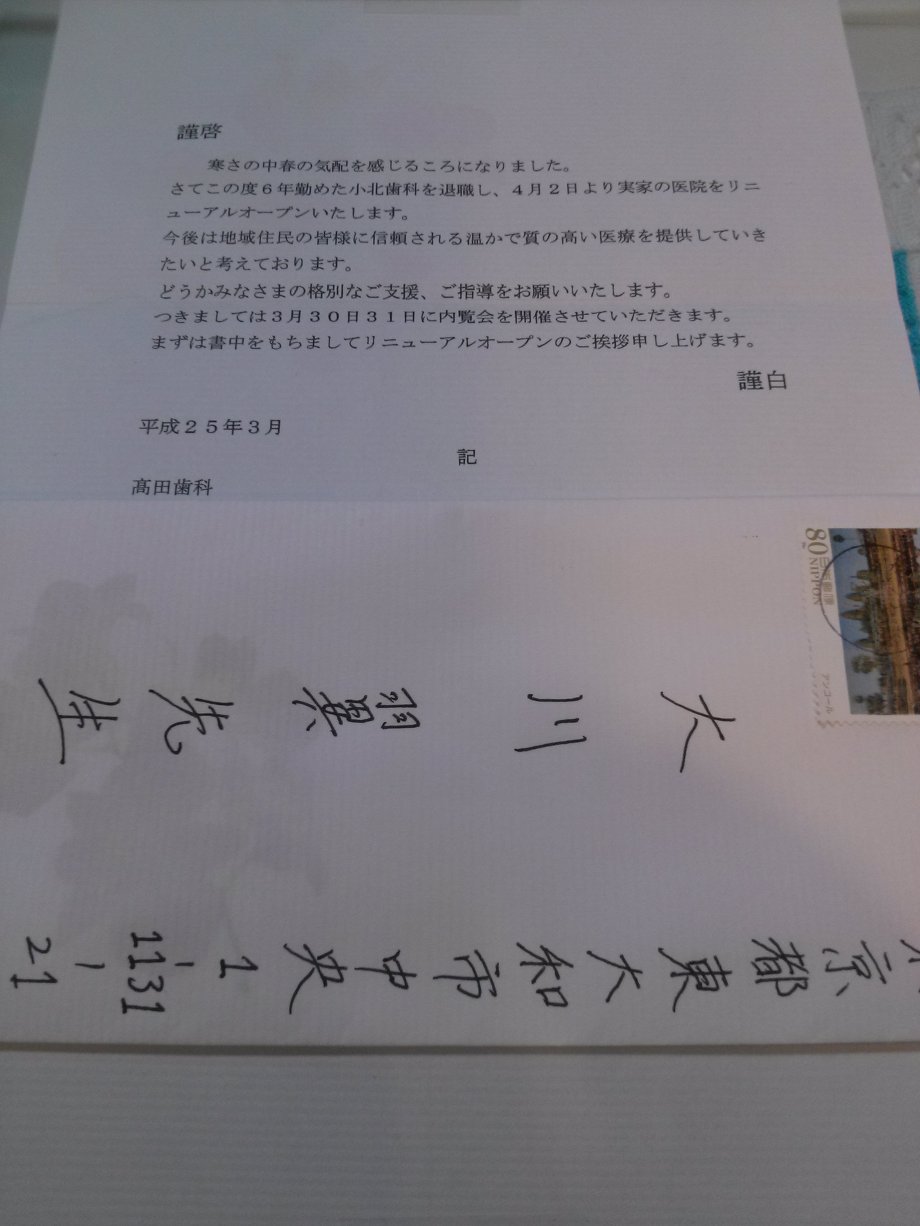 謹啓
寒さの中春の気配を感じるころになりました。
さてこの度6年勤めた小北歯科を退職し、4月2日より実家の医院をリニ
ューアルオープンいたします。
今後は地域住民の皆様に信頼される温かで質の高い医療を提供していき
たいと考えております。
どうかみなさまの格別なご支援、ご指導をお願いいたします。
つきましては3月30日31日に内覧会を開催させていただきます。
まずは書中をもちましてリニューアルオープンのご挨拶申し上げます。
謹白
平成25年3月
記
髙田歯科
80
日本郵便
NIPPON
アンコール
京都東大和市中央1-1131-21
大川翼先生